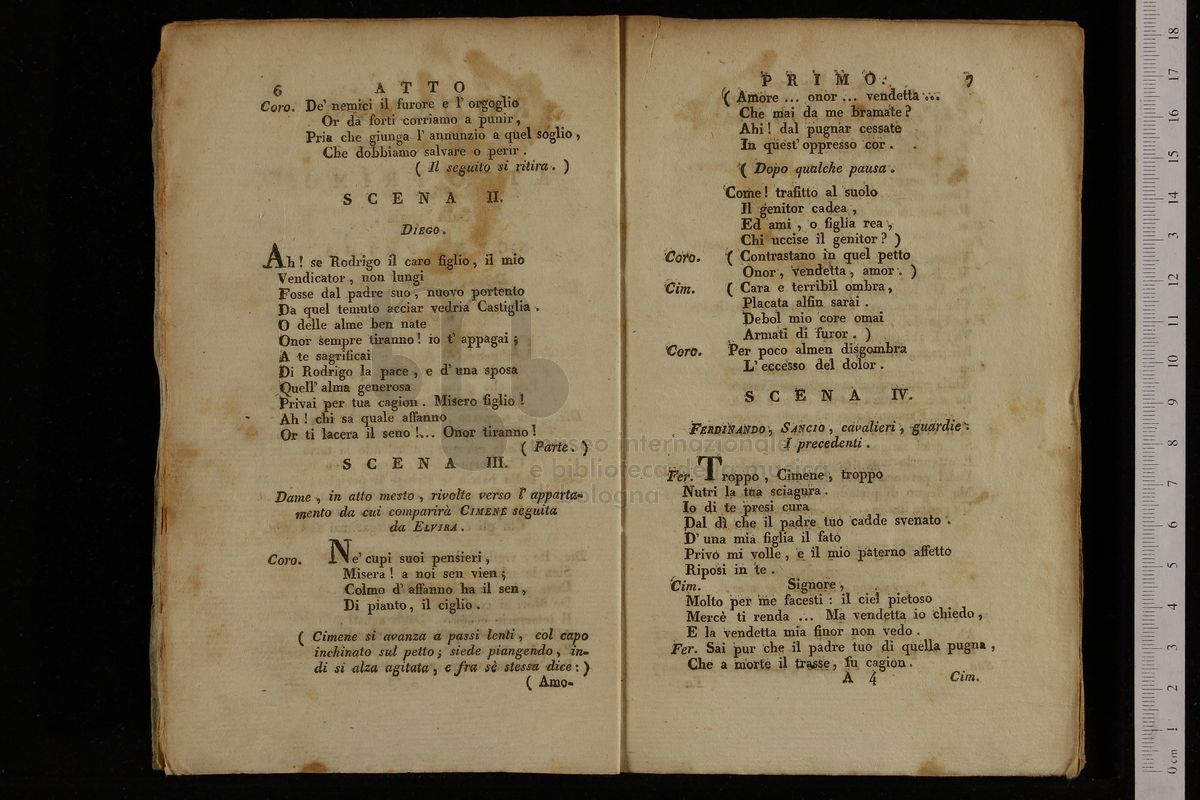 6 ATTO
Coro. De' nemici il furore e l' orgoglio
Or da forti corriamo a punir,
Pria che giunga l' annunzio a quel soglio,
Che dobbiamo salvare o perir.
( Il seguito si ritira. )
SCENA II.
DIEGO.
Ah! se Rodrigo il caro figlio, il mio
Vendicator, non lungi
Fosse dal padre suo, nuovo portento
Da quel temuto acciar vedria Castiglia.
O delle alme ben nate
Onor sempre tiranno! io t' appagai;
A te sagrificai
Di Rodrigo la pace, e d' una sposa
Quell' alma generosa
Privai per tua cagion. Misero figlio!
Ah! chi sa quale affanno
Or ti lacera il seno!... Onor tiranno!
( Parte. )
SCENA III.
Dame, in atto mesto, rivolte verso l' apparta-
mento da cui comparirà CIMENE seguita
da ELVIRA.
Coro. Ne' cupi suoi pensieri,
Misera! a noi sen vien;
Colmo d' affanno ha il sen,
Di pianto, il ciglio.
( Cimene si avanza a passi lenti, col capo
inchinato sul petto; siede piangendo, in-
di si alza agitata, e fra sè stessa dice: )
( Amo-
PRIMO. 7
( Amore ... onor ... vendetta ...
Che mai da me bramate?
Ahi! dal pugnar cessate
In quest' oppresso cor.
( Dopo qualche pausa.
Come! trafitto al suolo
Il genitor cadea,
Ed ami, o figlia rea,
Chi uccise il genitor? )
Coro. ( Contrastano in quel petto
Onor, vendetta, amor. )
Cim. ( Cara e terribil ombra,
Placata alfin sarai.
Debol mio core omai
Armati di furor. )
Coro. Per poco almen disgombra
L' eccesso del dolor.
SCENA IV.
FERDINANDO, SANCIO, cavalieri, guardie.
I precedenti.
Fer. Troppo, Cimene, troppo
Nutri la tua sciagura.
Io di te presi cura
Dal dì che il padre tuo cadde svenato.
D' una mia figlia il fato
Privo mi volle, e il mio paterno affetto
Riposi in te.
Cim. Signore,
Molto per me facesti: il ciel pietoso
Mercè ti renda ... Ma vendetta io chiedo,
E la vendetta mia finor non vedo.
Fer. Sai pur che il padre tuo di quella pugna,
Che a morte il trasse, fu cagion.
A 4 Cim.
museo internazionale
e biblioteca della musica
di bologna
0 cm 1 2 3 4 5 6 7 8 9 10 11 12 13 14 15 16 17 18